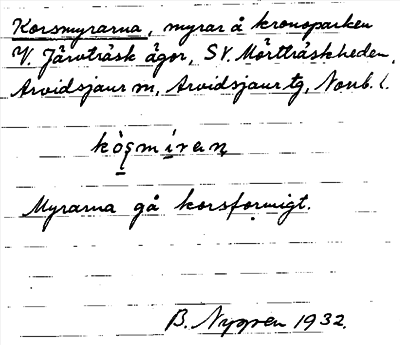 Korsmyrarna, myrar å kronoparken
V. Järvträsk ägor, SV. Mörtträskheden,
Arvidsjaur sn, Arvidsjaur tg, Norrb. l.
Myrarna gå korsformigt.
B. Nygren 1932.